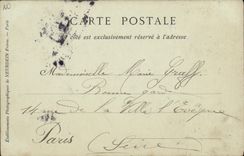 CARTE POSTALE
Ce côté est exclusivement réservé à l'adresse.
Mademoiselle Marie Graff
Bonne
14 rue de la Ville l'Evêque
Paris
(Seine)
Etablissements Photographiques de NEURDEIN Frères. — Paris